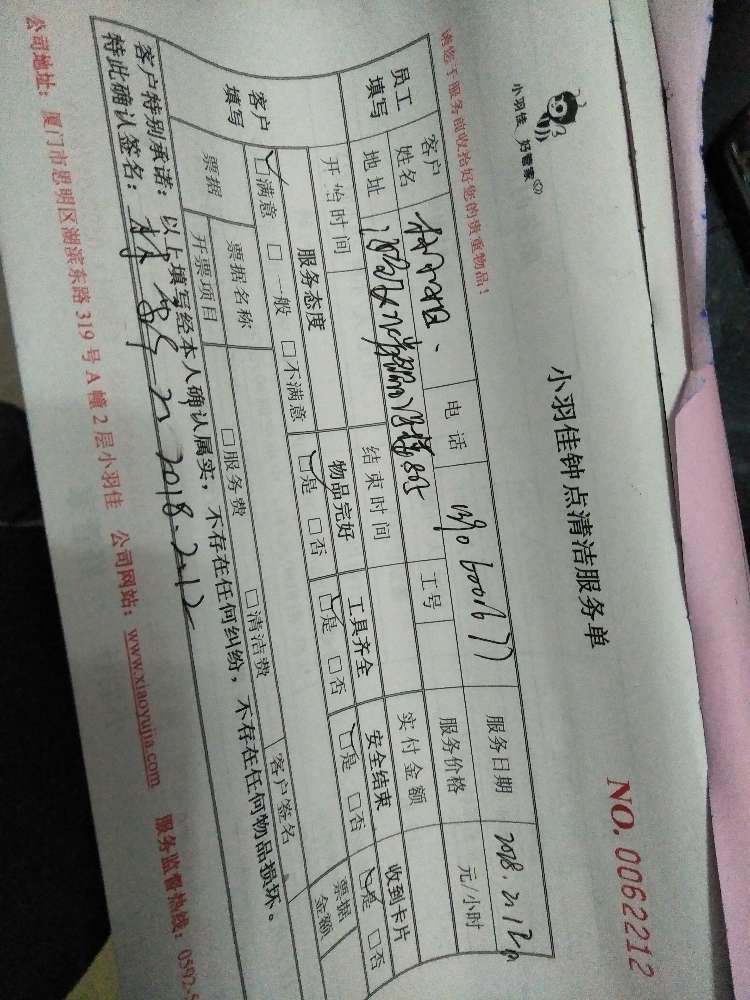 小羽佳 好管家
小羽佳钟点清洁服务单
NO. 0062212
请您于服务前收拾好您的贵重物品!
员工填写
客户姓名
电话
服务日期
地址
工号
服务价格
元/小时
开始时间
结束时间
实付金额
客户填写
服务态度
物品完好
工具齐全
安全结束
收到卡片
☑满意 □一般 □不满意
☑是 □否
☑是 □否
☑是 □否
☑是 □否
票据
票据名称
开票项目
□服务费 □清洁费
客户签名
票据金额
客户特别承诺:以上填写经本人确认属实,不存在任何纠纷,不存在任何物品损坏。
特此确认签名: 2018.2.12
公司地址:厦门市思明区湖滨东路319号A幢2层小羽佳 公司网站:www.xiaoyujia.com 服务监督热线:0592-